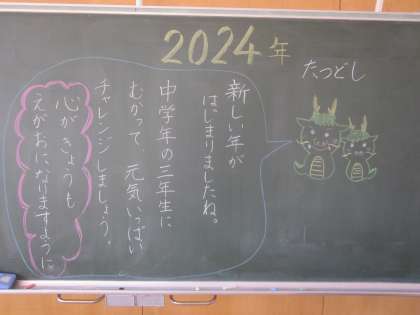 2024年
たつどし
新しい年が
はじまりましたね。
中学年の三年生に
むかって、元気いっぱい
チャレンジしましょう。
心がきょうも
えがおになりますように